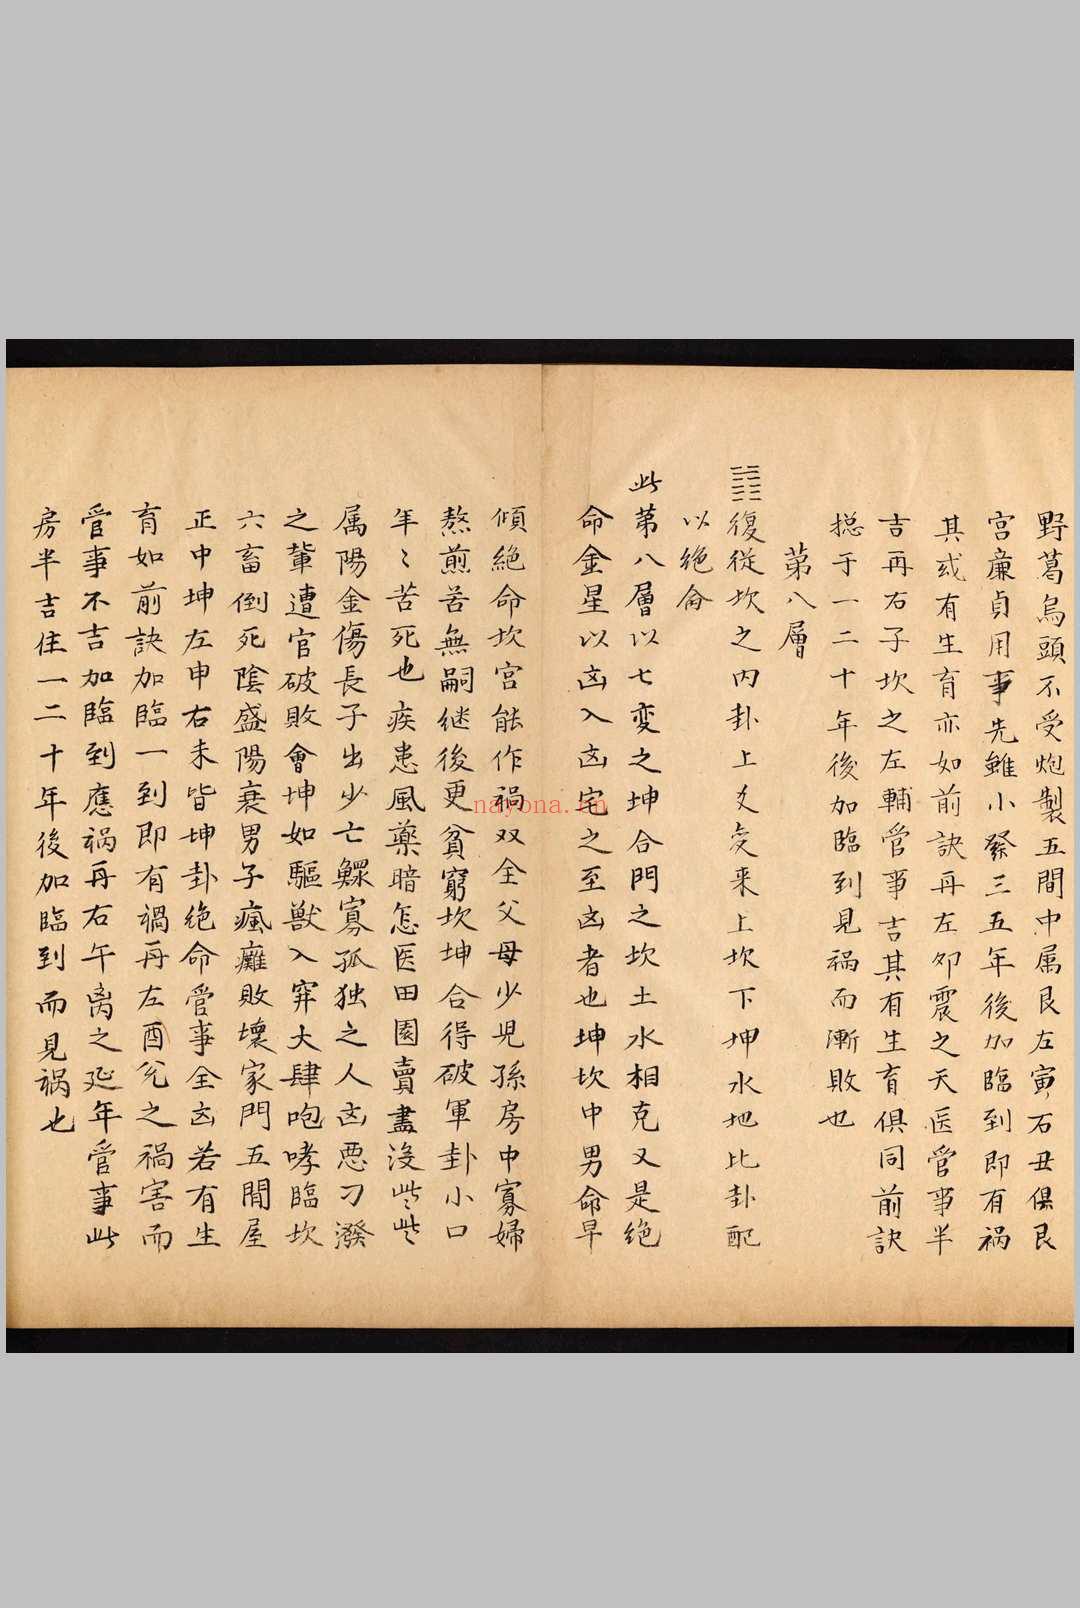 野葛烏頭不受炮製五間中属艮左寅右丑俱艮
宮廉貞用事先雖小發三五年後加臨到即有禍
其或有生育亦如前訣再左卯震之天医管事半
吉再右子坎之左輔管事吉其有生育俱同前訣
搃于一二十年後加臨到見禍而漸敗也
第八層
䷇復從坎之内卦上爻变来上坎下坤水地比卦配
以絶侖
此第八層以七変之坤合門之坎土水相克又是絶
命金星以凶入凶宅之至凶者也坤坎中男命早
傾絶命坎宮能作禍双全父母少児孫房中寡婦
熬煎苦無嗣継後更貧窮坎坤合得破軍卦小口
年〻苦死也疾患風藥暗怎医田園賣盡沒些些
属陽金傷長子出少亡鰥寡孤独之人凶悪刁潑
之輩遭官破敗會坤如驅獣入穽大肆咆哮臨坎
六畜倒死陰盛陽衰男子瘋癱敗壞家門五間屋
正中坤左申右未皆坤卦絶命管事全凶若有生
育如前訣加臨一到即有禍再左酉兊之禍害而
管事不吉加臨到應禍再右午离之延年管事此
房半吉住一二十年後加臨到而見禍也
nayona.cn